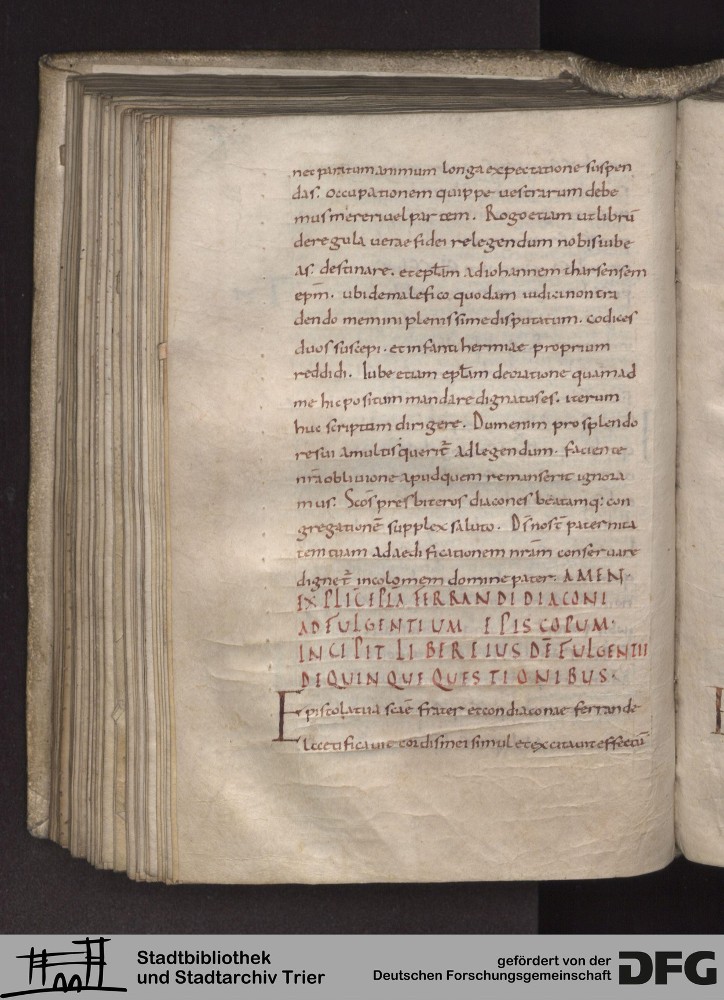 nec paratum animum longa expectatione suspen
das. Occupationem quippe uestrarum debe
mus mereri uel partem. Rogo etiam ut librū
de regula uerae fidei relegendum nobis iube
as. destinare. et eptām ad iohannem tharsensem
epm̄. ubi de malefico quodam iudici non tra
dendo memini plenissime disputatum. codices
duos suscepi. et infanti hermiae proprium
reddidi. Iube etiam eptām de oratione quam ad
me hic positum mandare dignatus es. iterum
huc scriptam dirigere. Dum enim pro splendo
re sui a multis querit̄ ad legendum. faciente
nr̄a obliuione apud quem remanserit ignora
mus. Scōs presbiteros diacones beatamq: con
gregationē supplex saluto. Ds̄ nost̄ paternita
tem tuam ad aedificationem nr̄am conseruare
dignet̄ incolomem domine pater. AMEN.
EXPLIC̄ EPLA FERRANDI DIACONI
AD FULGENTIUM EPISCOPUM.
INCIPIT LIBER EIUSDĒ FULGENTII
DE QUINQUE QUESTIONIBUS.
Epistola tua scāe frater et condiaconae ferrande
Laetificauit cor dis mei simul et excitauit effectū
Stadtbibliothek
und Stadtarchiv Trier
gefördert von der
Deutschen Forschungsgemeinschaft
DFG